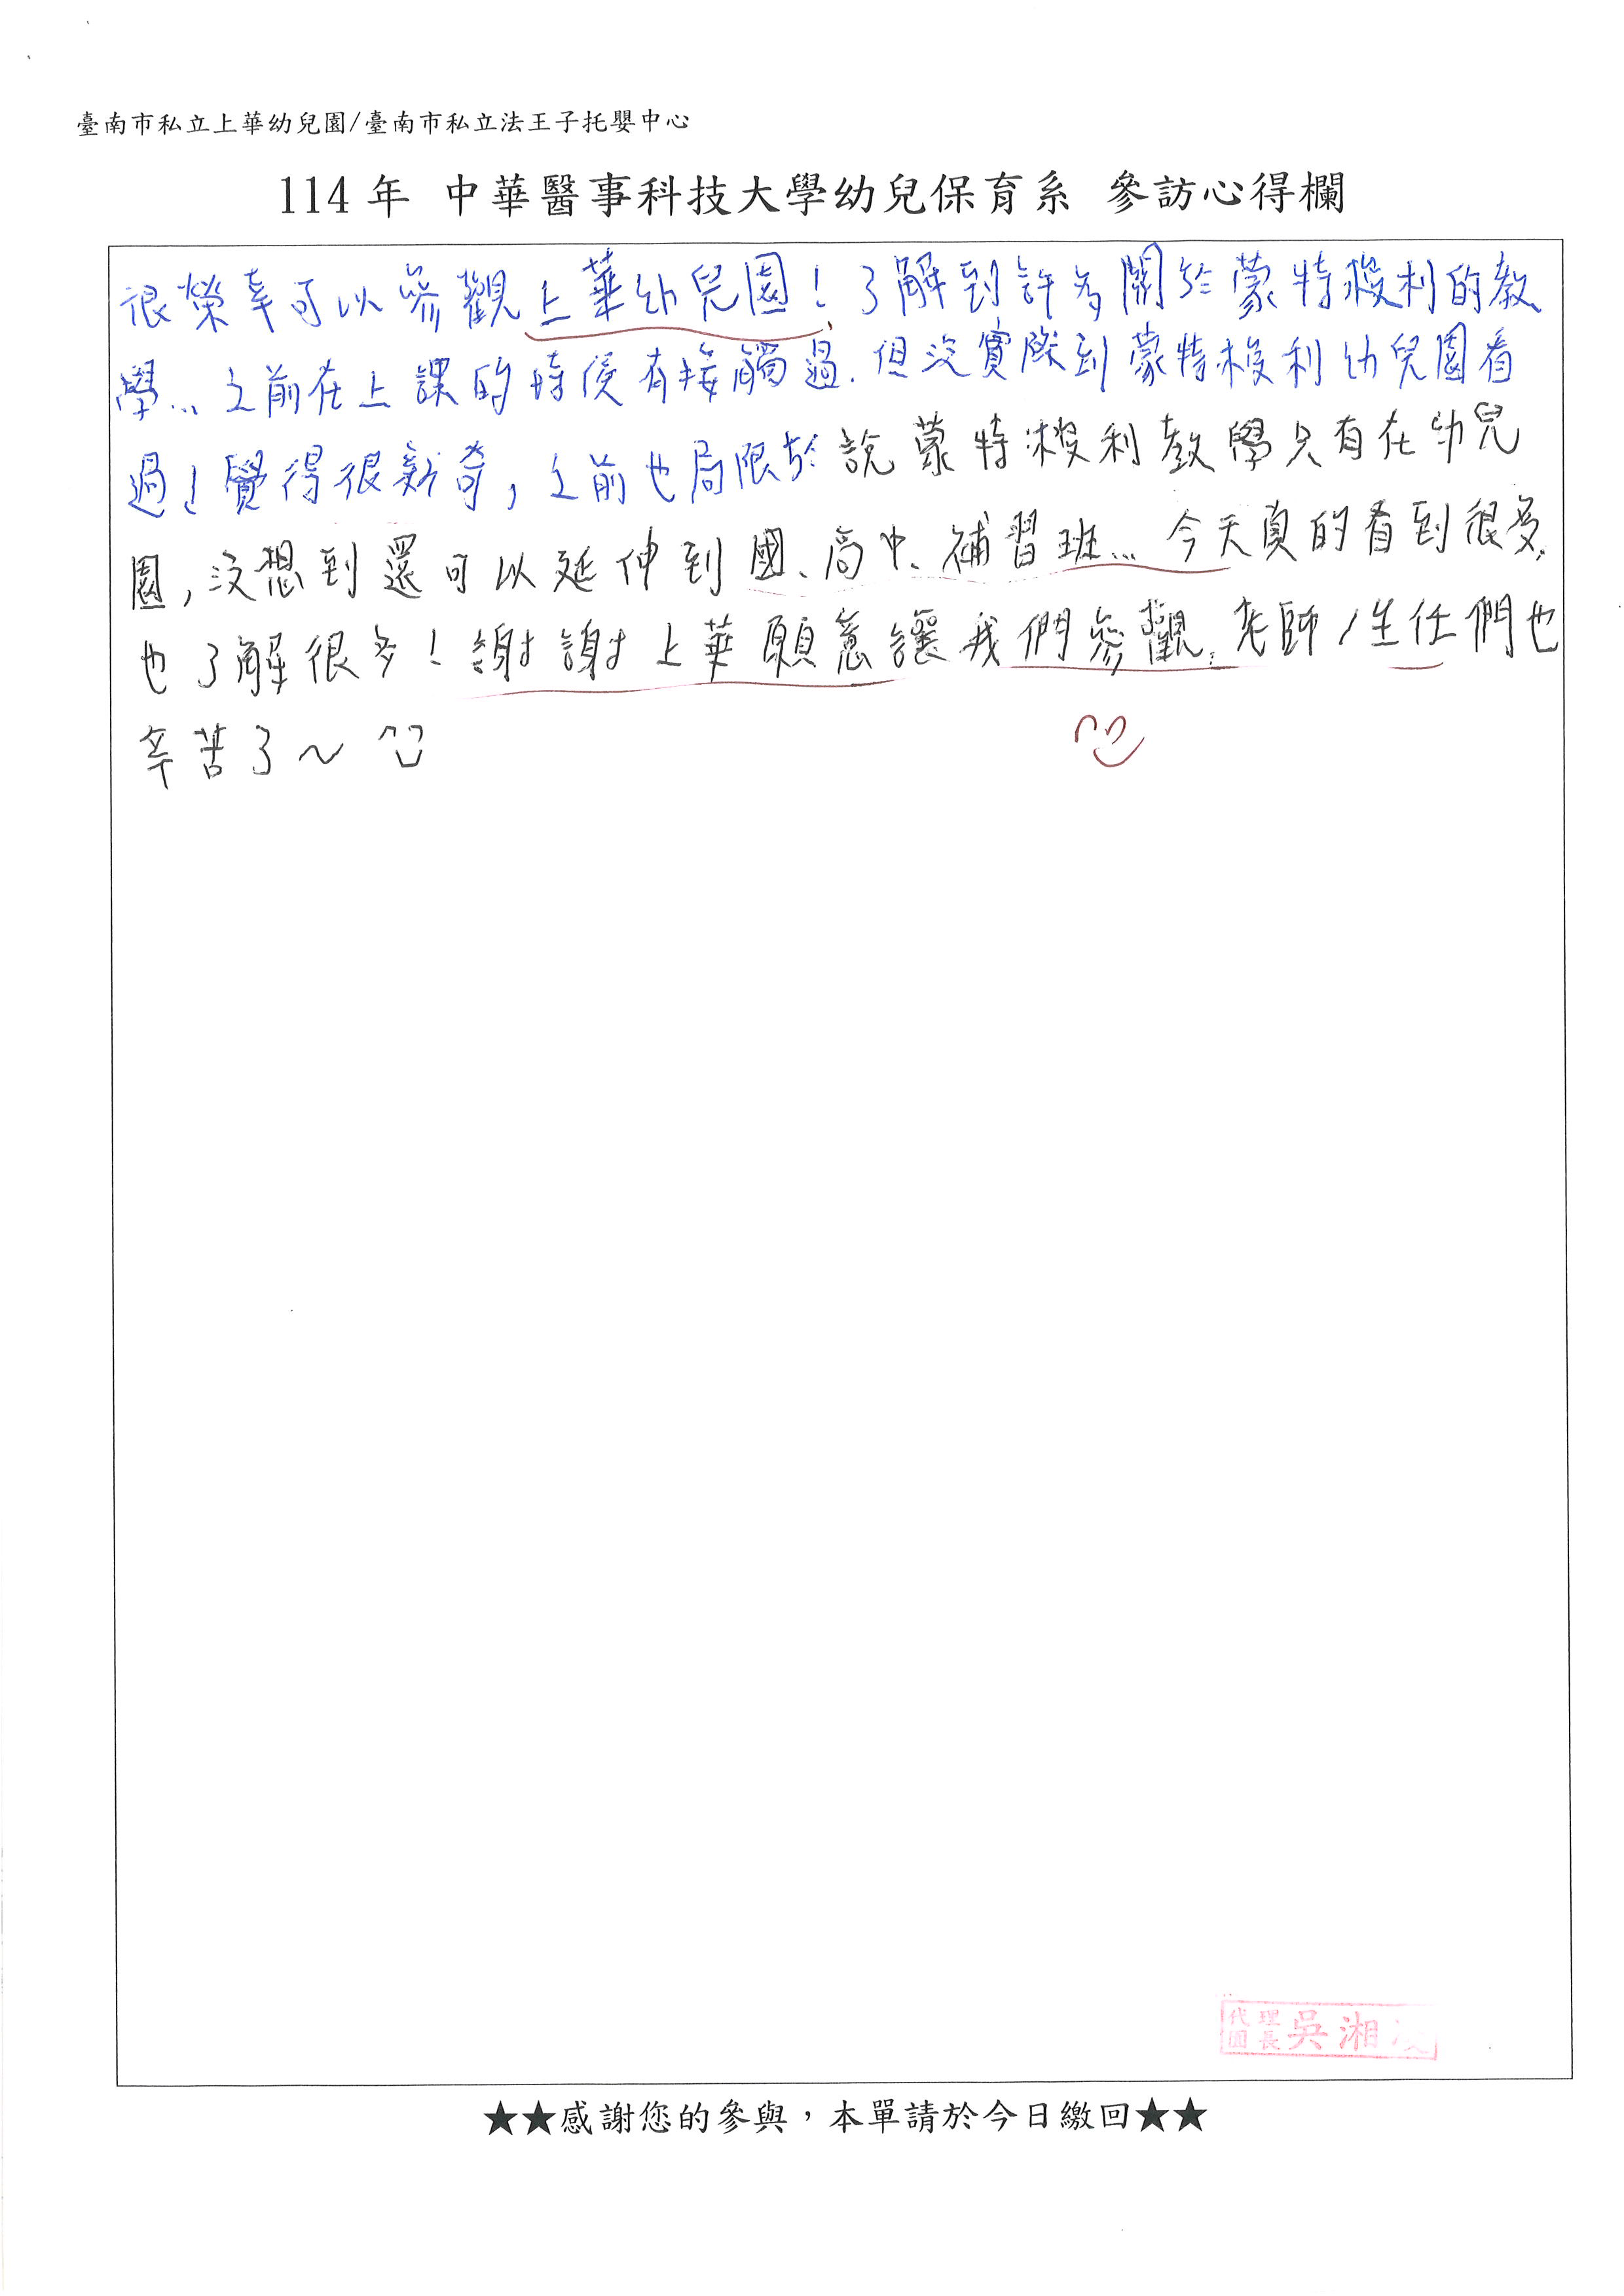 臺南市私立上華幼兒園/臺南市私立法王子托嬰中心
114年 中華醫事科技大學幼兒保育系 參訪心得欄
很榮幸可以參觀上華幼兒園!了解到許多關於蒙特梭利的教
學...之前在上課的時候有接觸過.但沒實際到蒙特梭利幼兒園看
過!覺得很新奇,之前也局限於說蒙特梭利教學只有在幼兒
園,沒想到還可以延伸到國、高中、補習班...今天真的看到很多,
也了解很多!謝謝上華願意讓我們參觀.老師/主任們也
辛苦了~
代理
園長 吳湘
★★感謝您的參與,本單請於今日繳回★★